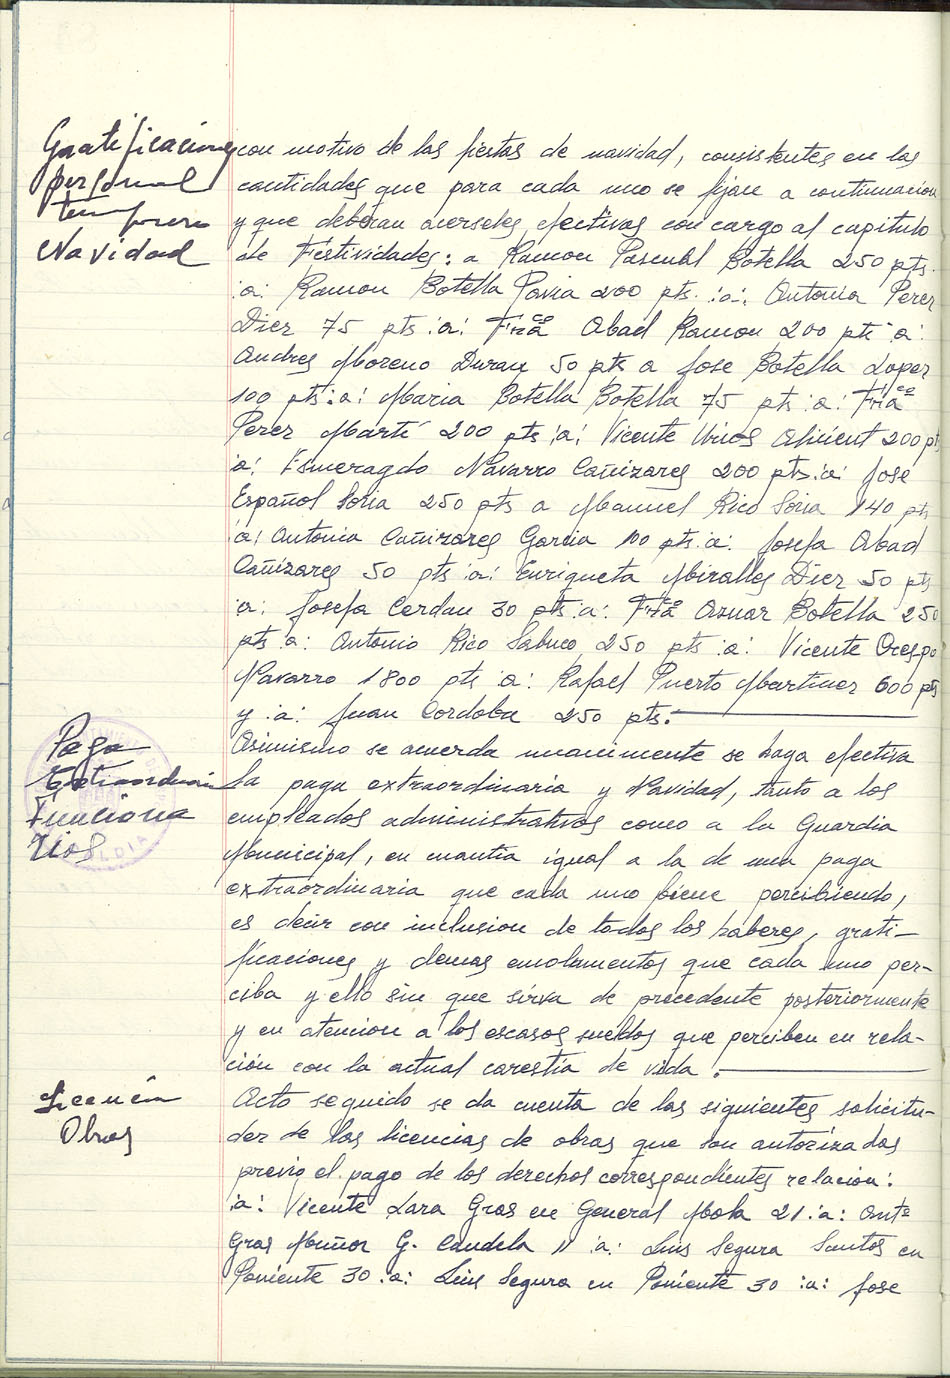 Gratificacion
personal
temporero
Navidad
con motivo de las fiestas de navidad, consistentes en las
cantidades que para cada uno se fijan a continuacion
y que deberan serseles efectivas con cargo al capitulo
de Festividades: a Ramon Pascual Botella 250 pts.
:a: Ramon Botella Pavia 200 pts. :a: Antonia Perez
Diez 75 pts :a: Frãco Abad Ramon 200 pts :a:
Andres Moreno Duran 50 pts a Jose Botella Lopez
100 pts :a: Maria Botella Botella 75 pts :a: Frãco
Perez Martí 200 pts :a: Vicente 200 pts
:a: Esmeragdo Navarro Cañizares 200 pts :a: Jose
Español Soria 250 pts a Manuel Rico Soria 140 pts
a: Antonia Cañizares Garcia 100 pts :a: Josefa Abad
Cañizares 50 pts :a: Enriqueta Miralles Diez 50 pts
:a: Josefa Cerdan 30 pts :a: Frãco Aznar Botella 250
pts :a: Antonio Rico Sabuco 250 pts :a: Vicente Crespo
Navarro 1800 pts :a: Rafael Puerto Martinez 600 pts
y :a: Juan Cordoba 250 pts.
Paga
Extraordinari
Funciona
rios
Asimismo se acuerda unanimente se haga efectiva
la paga extraordinaria y Navidad, tanto a los
empleados administrativos como a la Guardia
Municipal, en cuantia igual a la de una paga
extraordinaria que cada uno biene percibiendo,
es decir con inclusion de todos los haberes, grati-
ficaciones y demas emolamentos que cada uno per-
ciba y ello sin que sirva de precedente posteriormente
y en atencion a los escasos sueldos que perciben en rela-
ción con la actual carestia de vida.
Licencia
Obras
Acto seguido se da cuenta de las siguientes solicitu-
der de las licencias de obras que son autorizadas
previo el pago de los derechos correspondientes relacion:
:a: Vicente Lara Gras en General Mola 21 :a: Antº
Gras Muñoz G. Candela 11 :a: Luis Segura Santos en
Poniente 30 :a: Luis Segura en Poniente 30 :a: Jose